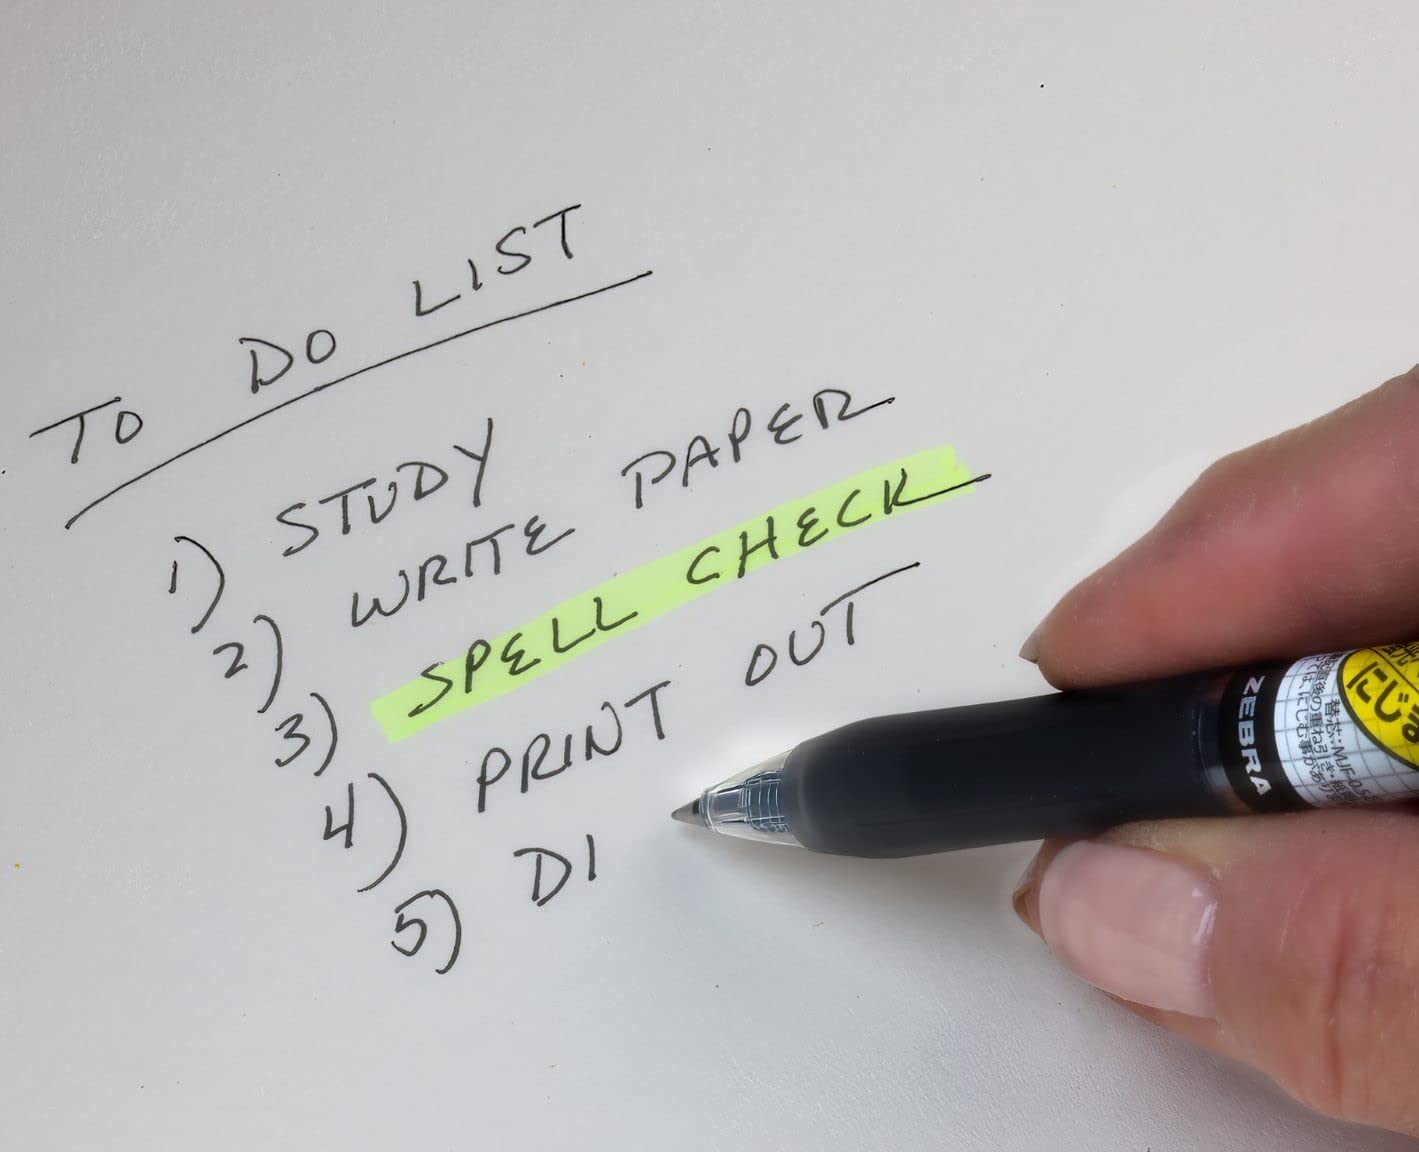 TO DO LIST
1) STUDY
2) WRITE PAPER
3) SPELL CHECK
4) PRINT OUT
5) DI
ZEBRA
にじ